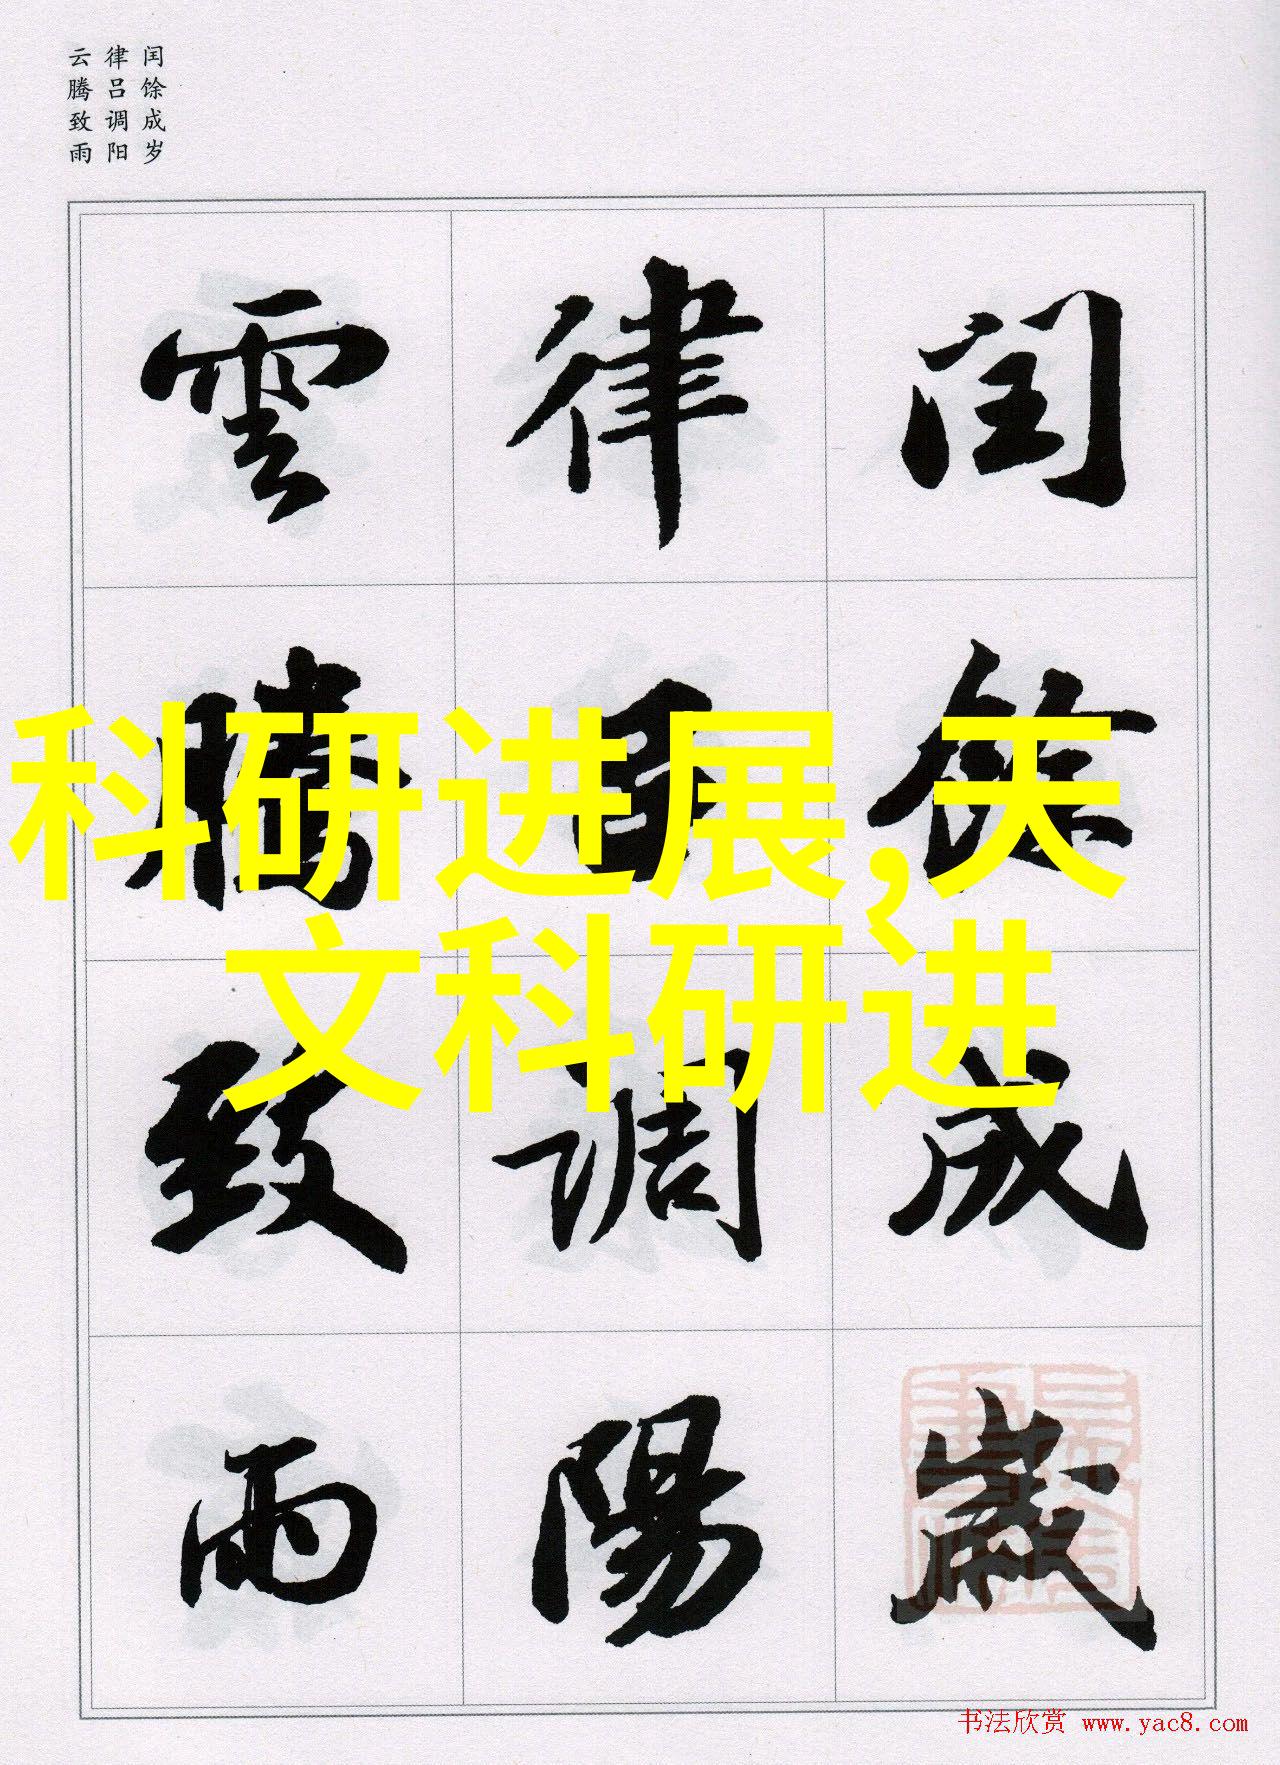 闰馀成岁
律吕调阳
云腾致雨
閏餘成歲
律吕調陽
雲騰致雨
科研进展,天
文科研进
书法欣赏 www.yac8.com